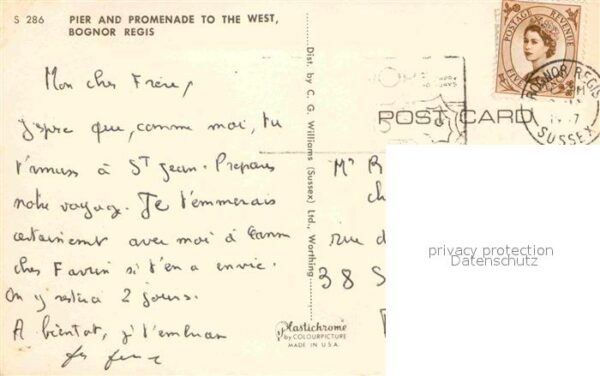 S 286 PIER AND PROMENADE TO THE WEST,
BOGNOR REGIS
Mon cher Frère,
J'espre que, comme moi, tu
t'amuses à St Jean. Prepares
notre voyage. Je t'emmerais
certainement avec moi à
chez Favrin si t'en a envie.
On y restera 2 jours.
A bientôt, j't'embrasse
Dist. by C. G. Williams (Sussex) Ltd., Worthing
Plastichrome
by COLOURPICTURE
MADE IN U.S.A.
POSTAGE REVENUE
BOGNOR REGIS
SUSSEX
POST CARD
Mr
rue
38 S
privacy protection
Datenschutz